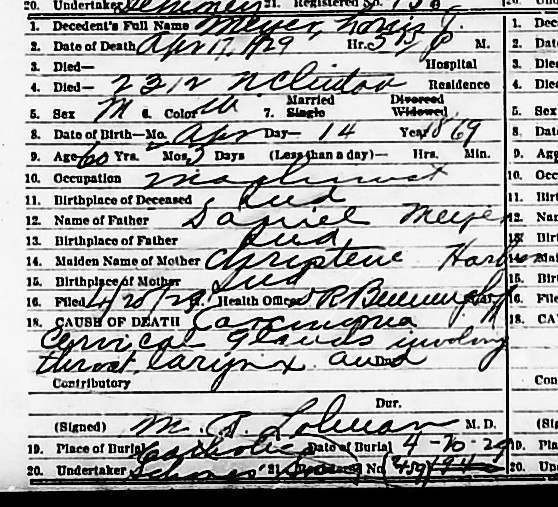 20. Undertaker 21. Registered No.
1. Decedent's Full Name Meyer, Louis J.
2. Date of Death Apr 17, 1929 Hr. 5 15 P M.
3. Died— Hospital
4. Died— 2312 N Clinton Residence
5. Sex M 6. Color W 7. Married Single Divorced Widowed
8. Date of Birth—Mo. Apr Day— 14 Year 1869
9. Age 60 Yrs. Mos. 3 Days (Less than a day)— Hrs. Min.
10. Occupation Machinist
11. Birthplace of Deceased Ind
12. Name of Father Daniel Meyer
13. Birthplace of Father Ind
14. Maiden Name of Mother Christene
15. Birthplace of Mother Ind
16. Filed 4/20/29. Health Officer
18. CAUSE OF DEATH Carcinoma
Cervical Glands involving
throat, larynx and
Dur.
Contributory
Dur.
(Signed) M. D.
19. Place of Burial Catholic Date of Burial 4-20-29
20. Undertaker 21. No.
1. Dece
2. Date
3. Died
4. Died
5. Sex
8. Date
9. Age
10. Occ
11. Birt
12. Nam
13. Birt
14. Maid
15. Birt
16. Filed
18. CAU
Con
(Sig
19. Plac
20. Und